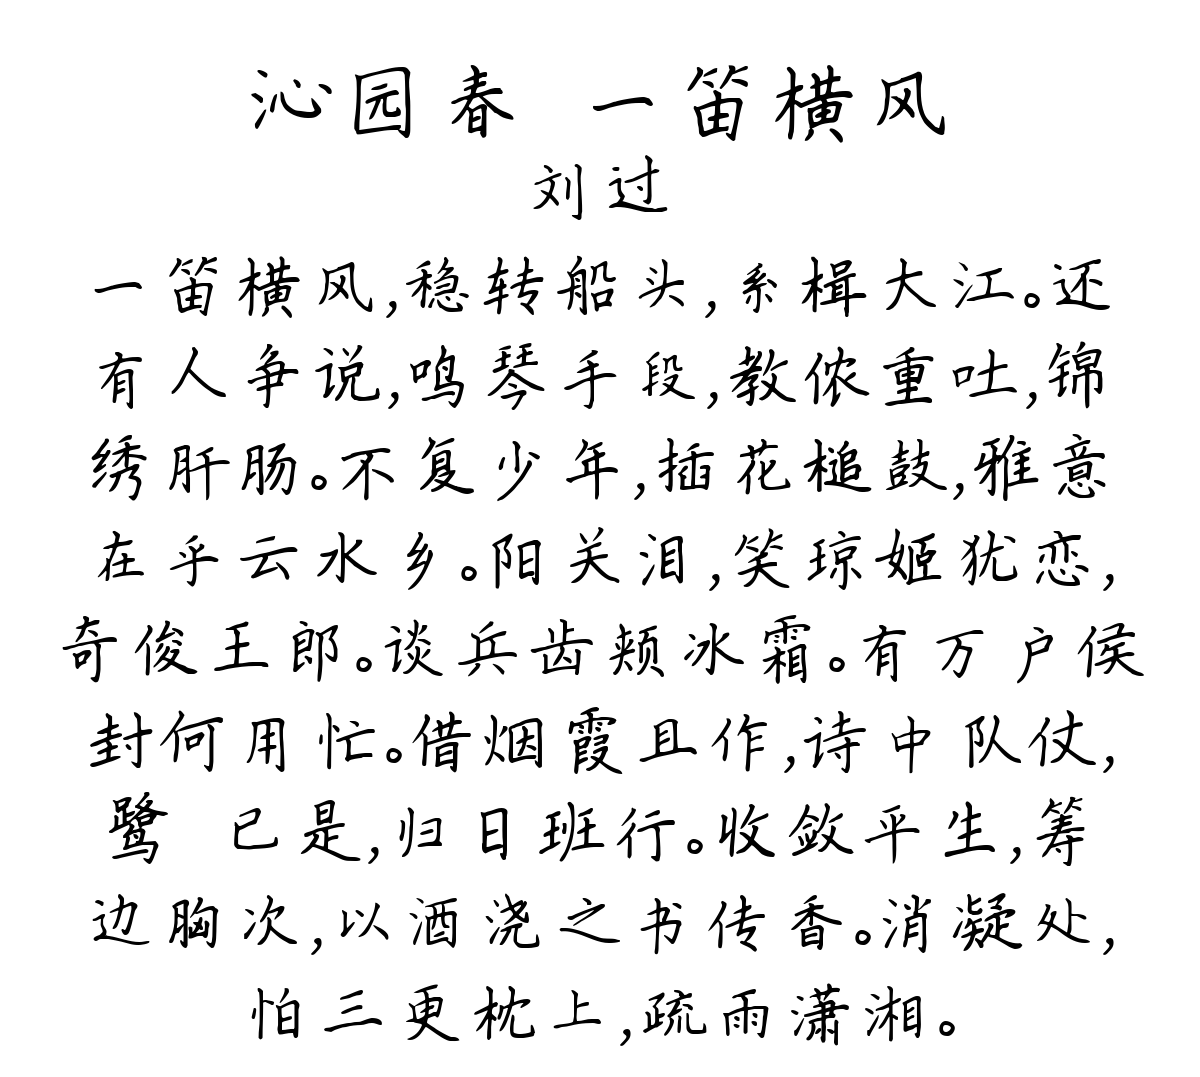 沁园春 一笛横风
刘过
一笛横风,稳转船头,系楫大江。还
有人争说,鸣琴手段,教侬重吐,锦
绣肝肠。不复少年,插花槌鼓,雅意
在乎云水乡。阳关泪,笑琼姬犹恋,
奇俊王郎。谈兵齿颊冰霜。有万户侯
封何用忙。借烟霞且作,诗中队仗,
鹭 已是,归日班行。收敛平生,筹
边胸次,以酒浇之书传香。消凝处,
怕三更枕上,疏雨潇湘。